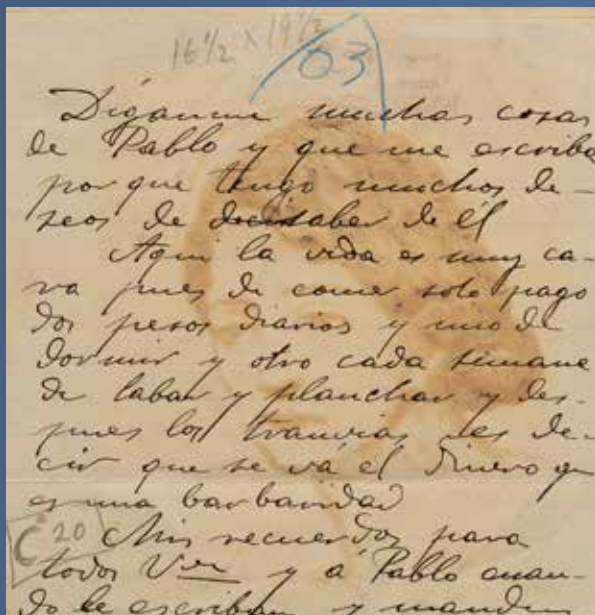 16 1/2 x 19 1/2
63
Díganme muchas cosas
de Pablo y que me escriba
por que tengo muchos de-
seos de saber de él
Aqui la vida es muy ca-
ra pues de comer solo pago
dos pesos diarios y uno de
dormir y otro cada semana
de labar y planchar y des-
pues los tranvias es de-
cir que se vá el dinero qe
es una barbaridad
C 20
Mis recuerdos para
todos Vdes y á Pablo cuan-
do le escriban y manden